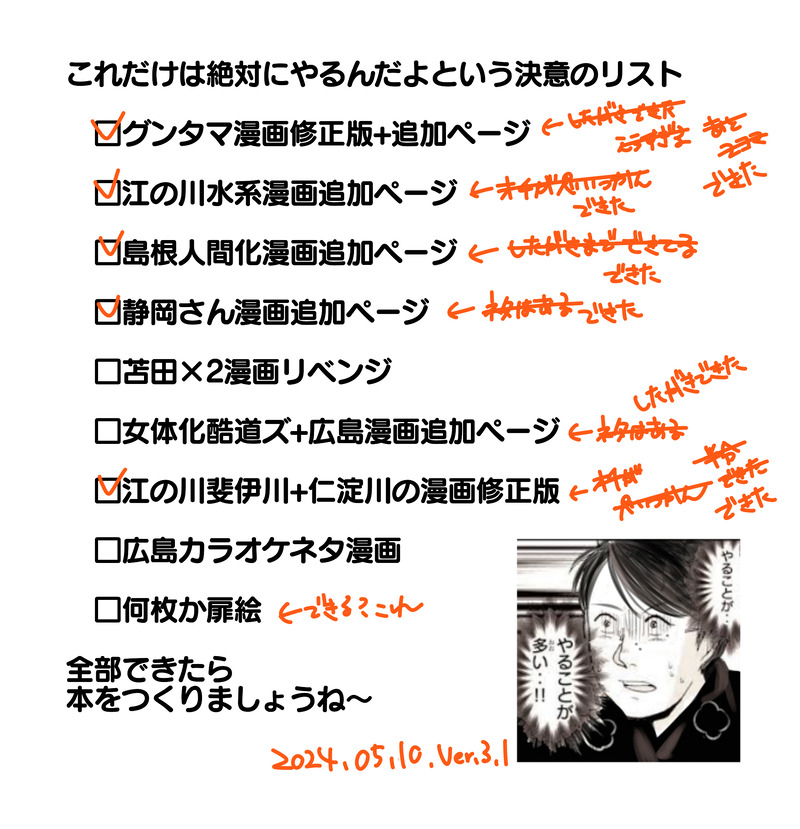 これだけは絶対にやるんだよという決意のリスト
☑グンタマ漫画修正版+追加ページ ← したがきできた
あと
2コマ
できた
☑江の川水系漫画追加ページ ←
できた
☑島根人間化漫画追加ページ ← したがきまでできてる
できた
☑静岡さん漫画追加ページ ← ネタはある できた
□苫田×2漫画リベンジ
したがきできた
□女体化酷道ズ+広島漫画追加ページ ← ネタはある
☑江の川斐伊川+仁淀川の漫画修正版 ← オチが
半分
できた
できた
□広島カラオケネタ漫画
□何枚か扉絵 ←できる?これ
全部できたら
本をつくりましょうね～
やることが‥
やることが
多い‥!!
おお
2024.05.10.Ver.3.1